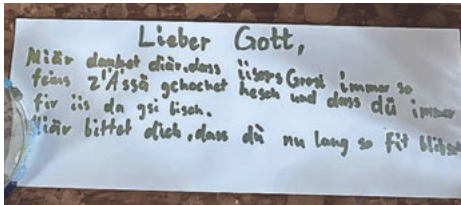 Lieber Gott,
Miär danket diär, dass iisers Grosi immer so
feins z'Ässä gchochet hesch und dass dü immer
fir iis da gsi bisch.
Miär bittet dich, dass dü nu lang so fit blibsch